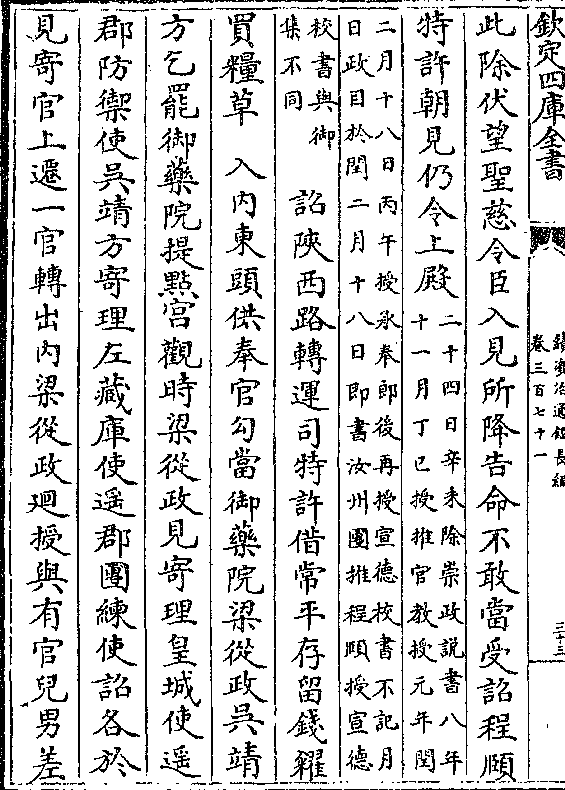 欽定四庫全書
續資治通鑑長編
卷三百七十一
三十三
此除伏望聖慈令臣入見所降告命不敢當受詔程頤
特許朝見仍令上殿
二十四日辛未除崇政說書八年
十一月丁巳授推官教授元年閏
二月十八日丙午授承奉郎後再授宣德校書不記月
日政目於閏二月十八日即書汝州團推程頤授宣德
校書與御
集不同
詔陝西路轉運司特許借常平存留錢糴
買糧草 入内東頭供奉官勾當御藥院梁從政吳靖
方乞罷御藥院提點宫觀時梁從政見寄理皇城使遥
郡防禦使吳靖方寄理左藏庫使遥郡團練使詔各於
見寄官上遷一官轉出内梁從政廻授與有官兒男差